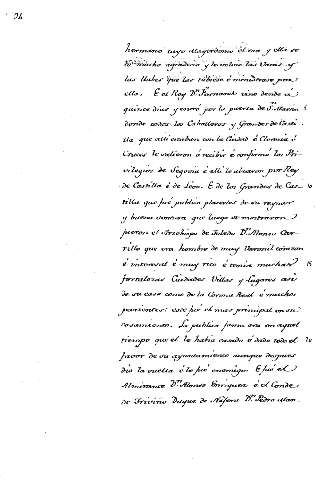 hermano cuyo Mayordomo él era y ella se
lo mucho agradeció y le volvió las Varas y
las llabes que las tubiese é ministrase por
ella. E el Rey Dn. Fernando vino dende á
quince dias y entró por la puerta de Sn. Martin 5
donde todos los Caballeros y Grandes de Casti
lla que alli estaban con la Ciudad é Clerecia é
Cruces le salieron á recibir é confirmó los Pri
vilegios de Segovia é alli le alzaron por Rey
de Castilla é de Leon. E de los Grandes de Cas- 10
tilla que fué publica placerles de su reynar
y buena ventura que luego se mostraron
fueron el Arzobispo de Toledo Dn. Alonso Car
rillo que era hombre de muy Varonil corazon
é interesal é muy rico é tenia muchas 15
fortalezas Ciudades Villas y lugares asi
de su casa como de la Corona Real é muchos
parientes: este fué el mas principal en su
casamiento. La publica forma era en aquel
tiempo que el le habia casado é dado todo el 20
favor de su ayuntamiento aunque despues
dió la vuelta é le fué enemigo. E fué el
Almirante Dn. Alonso Enriquez é el Conde
de Triviño Duque de Náxera Dn. Pedro Man-